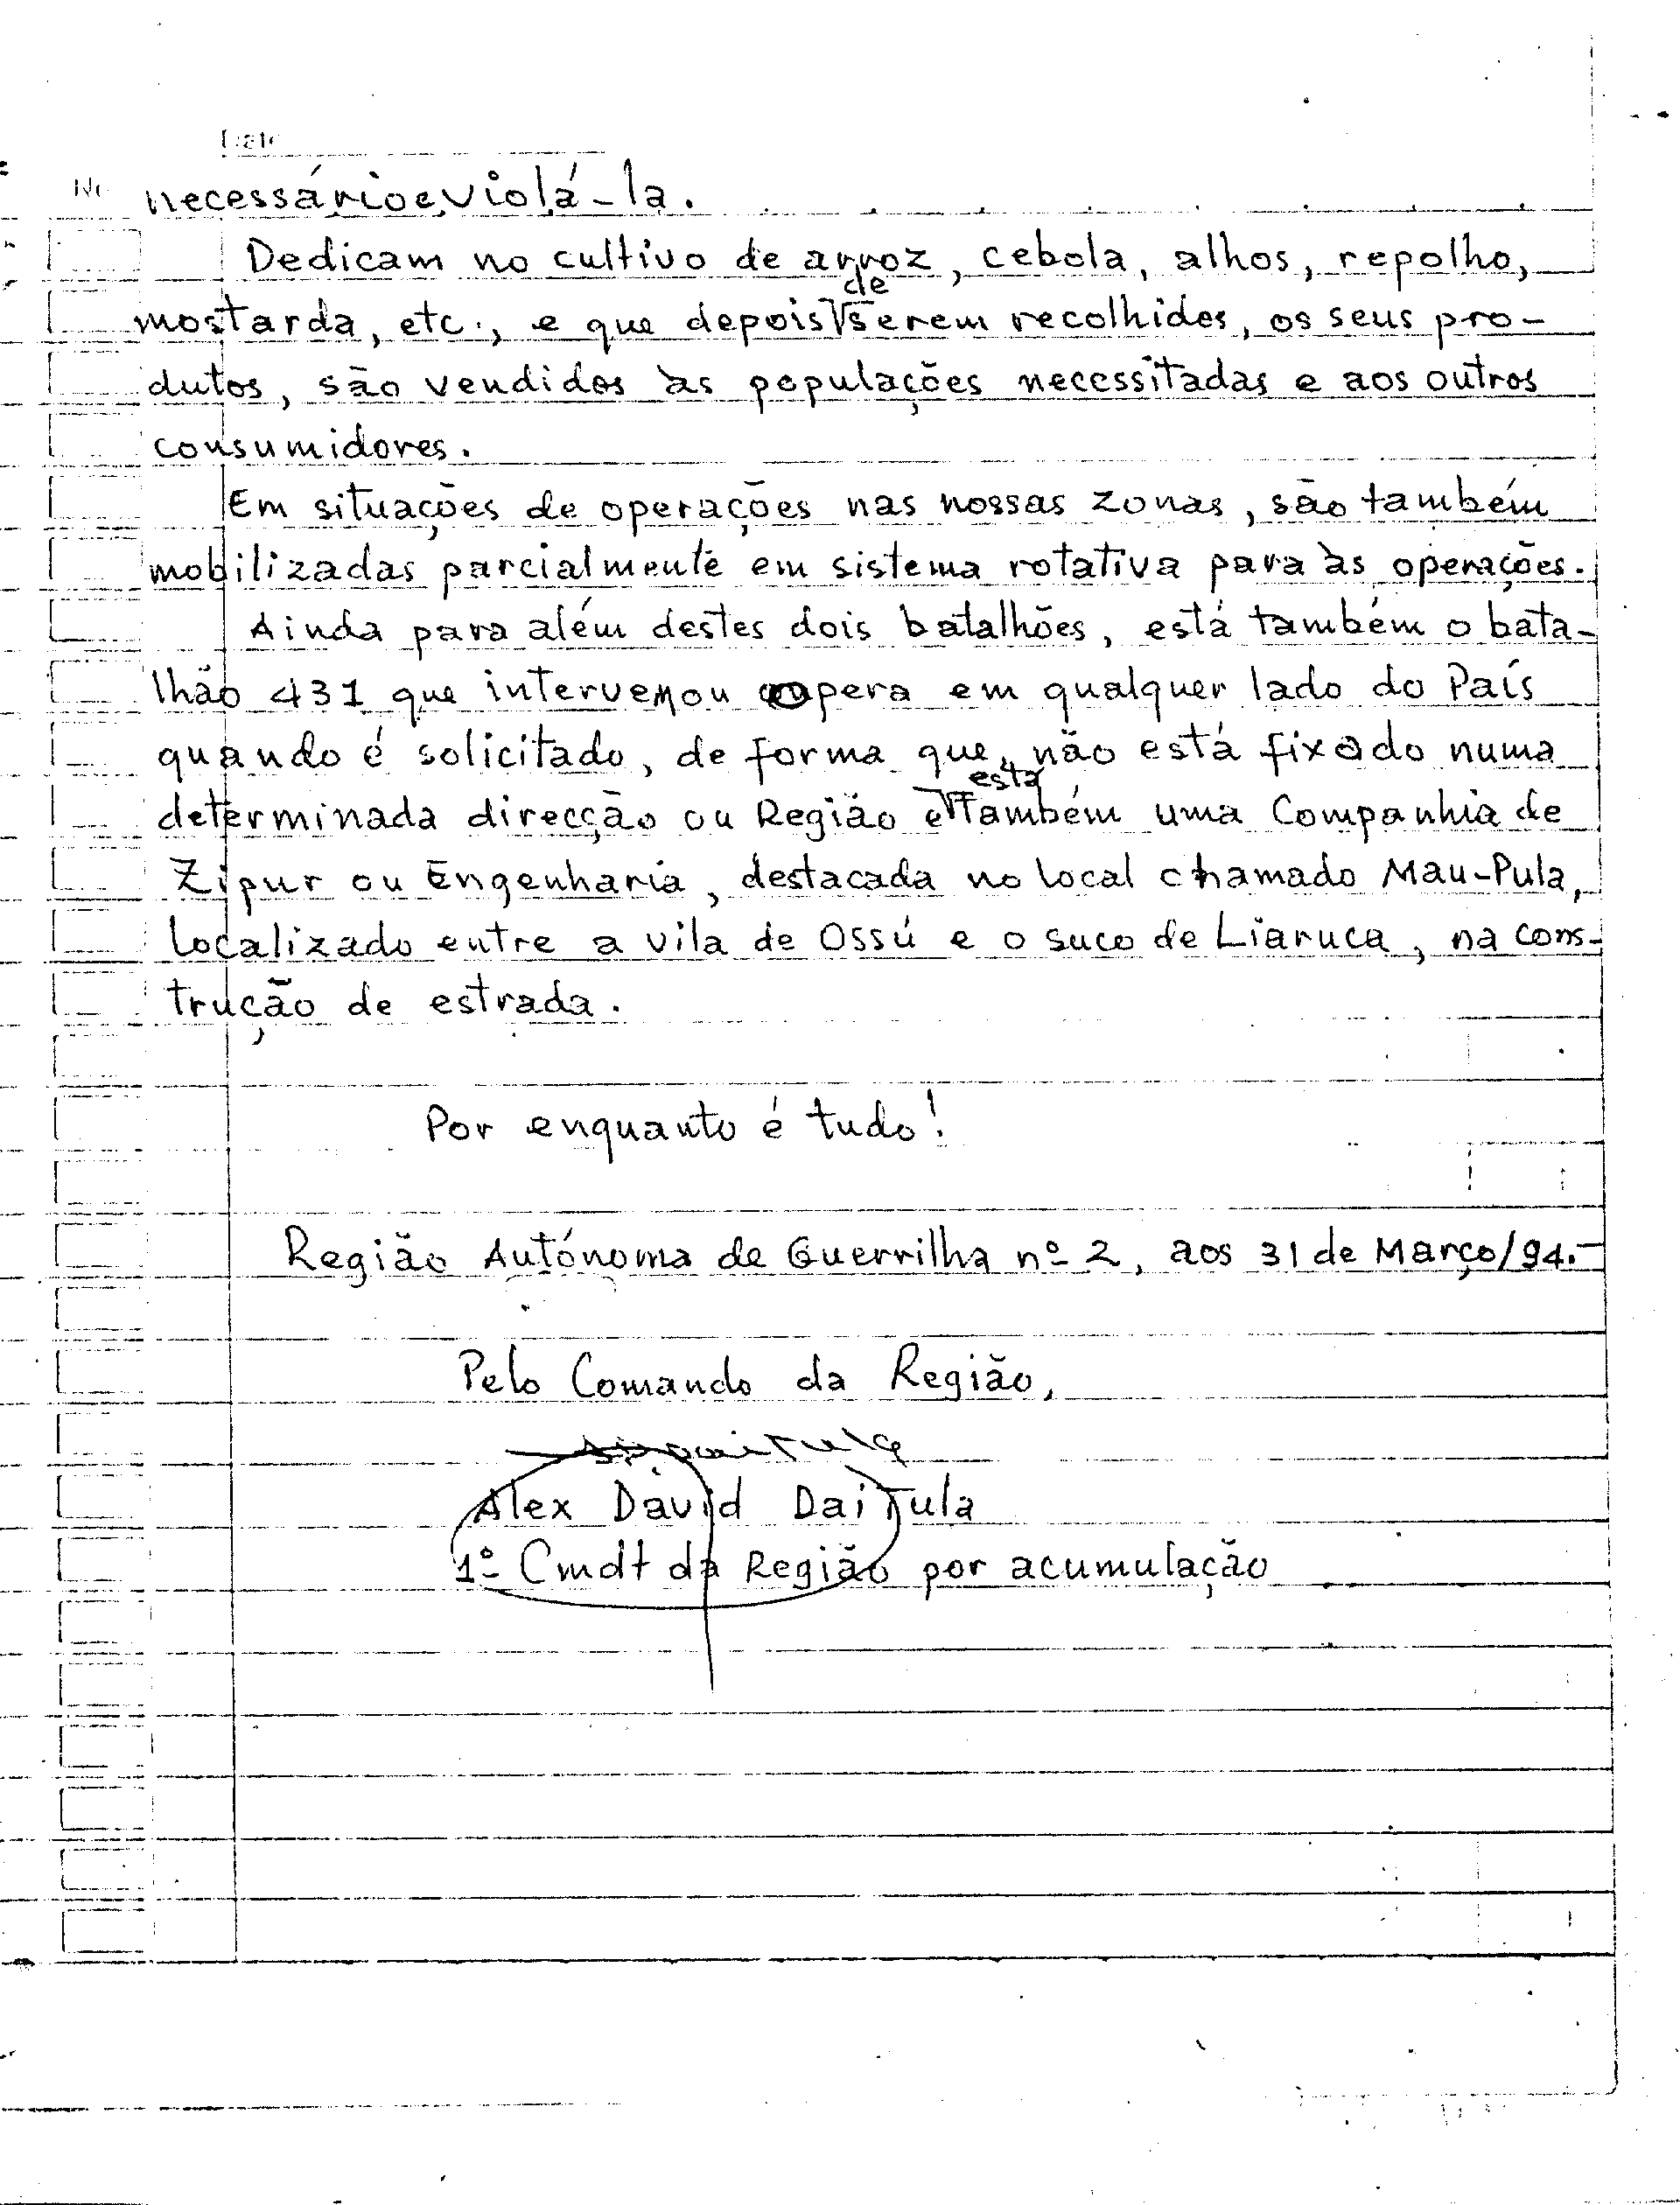 Date
No
necessário e violá-la.
Dedicam no cultivo de arroz, cebola, alhos, repolho,
mostarda, etc., e que depois de serem recolhidos, os seus pro-
dutos, são vendidos às populações necessitadas e aos outros
consumidores.
Em situações de operações nas nossas zonas, são também
mobilizadas parcialmente em sistema rotativa para às operações.
Ainda para além destes dois batalhões, está também o bata-
lhão 431 que intervem ou opera em qualquer lado do País
quando é solicitado, de forma que, não está fixado numa
determinada direcção ou Região e está também uma Companhia de
Zipur ou Engenharia, destacada no local chamado Mau-Pula,
localizado entre a vila de Ossú e o suco de Liaruca, na cons-
trução de estrada.
Por enquanto é tudo!
Região Autónoma de Guerrilha nº 2, aos 31 de Março/94.-
Pelo Comando da Região,
Alex David DaiTula
1º Cmdt da Região por acumulação